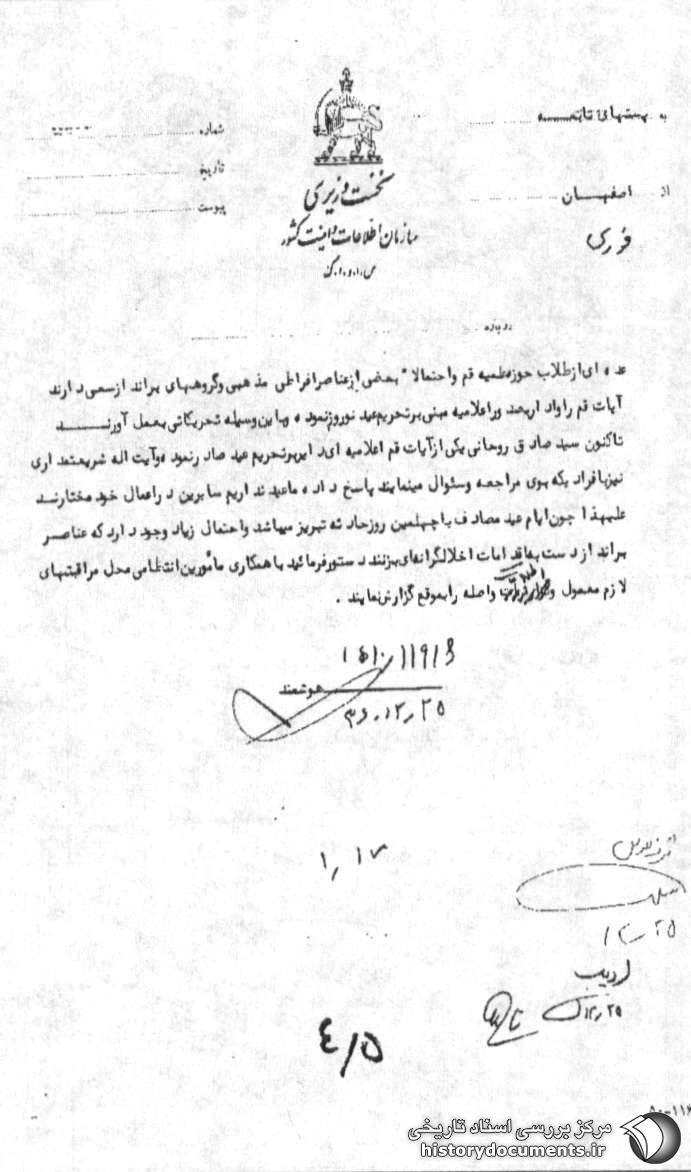 به بخشهای تابعه
از اصفهان
فوری
نخست وزیری
سازمان اطلاعات و امنیت کشور
س.ا.و.ا.ک
شماره
تاریخ
پیوست
درباره
عده ای از طلاب حوزه علمیه قم و احتمالا" بعضی از عناصر افراطی مذهبی و گروههای برانداز سعی دارند
آیات قم را وادار به صدور اعلامیه مبنی بر تحریم عید نوروز نموده و باین وسیله تحریکاتی بعمل آورند
تاکنون سید صادق روحانی یکی از آیات قم اعلامیه ای دایر بر تحریم عید صادر نموده و آیت اله شریعتمداری
نیز بافرادیکه بوی مراجعه و سئوال مینمایند پاسخ داده ما عید نداریم سایرین در اعمال خود مختارند
علیهذا چون ایام عید مصادف با چهلمین روز حادثه تبریز میباشد و احتمال زیاد وجود دارد که عناصر
برانداز دست به اقدامات اخلالگرانه ای بزنند دستور فرمائید با همکاری مأمورین انتظامی محل مراقبتهای
لازم معمول و واصله را بموقع گزارش نمایند .
هوشمند
۳۶،۱۲،۲۵
۱۲،۲۵
ادیب
۱۲،۲۵
۴/۵
۵۰-۱۱۶
مرکز بررسی اسناد تاریخی
historydocuments.ir